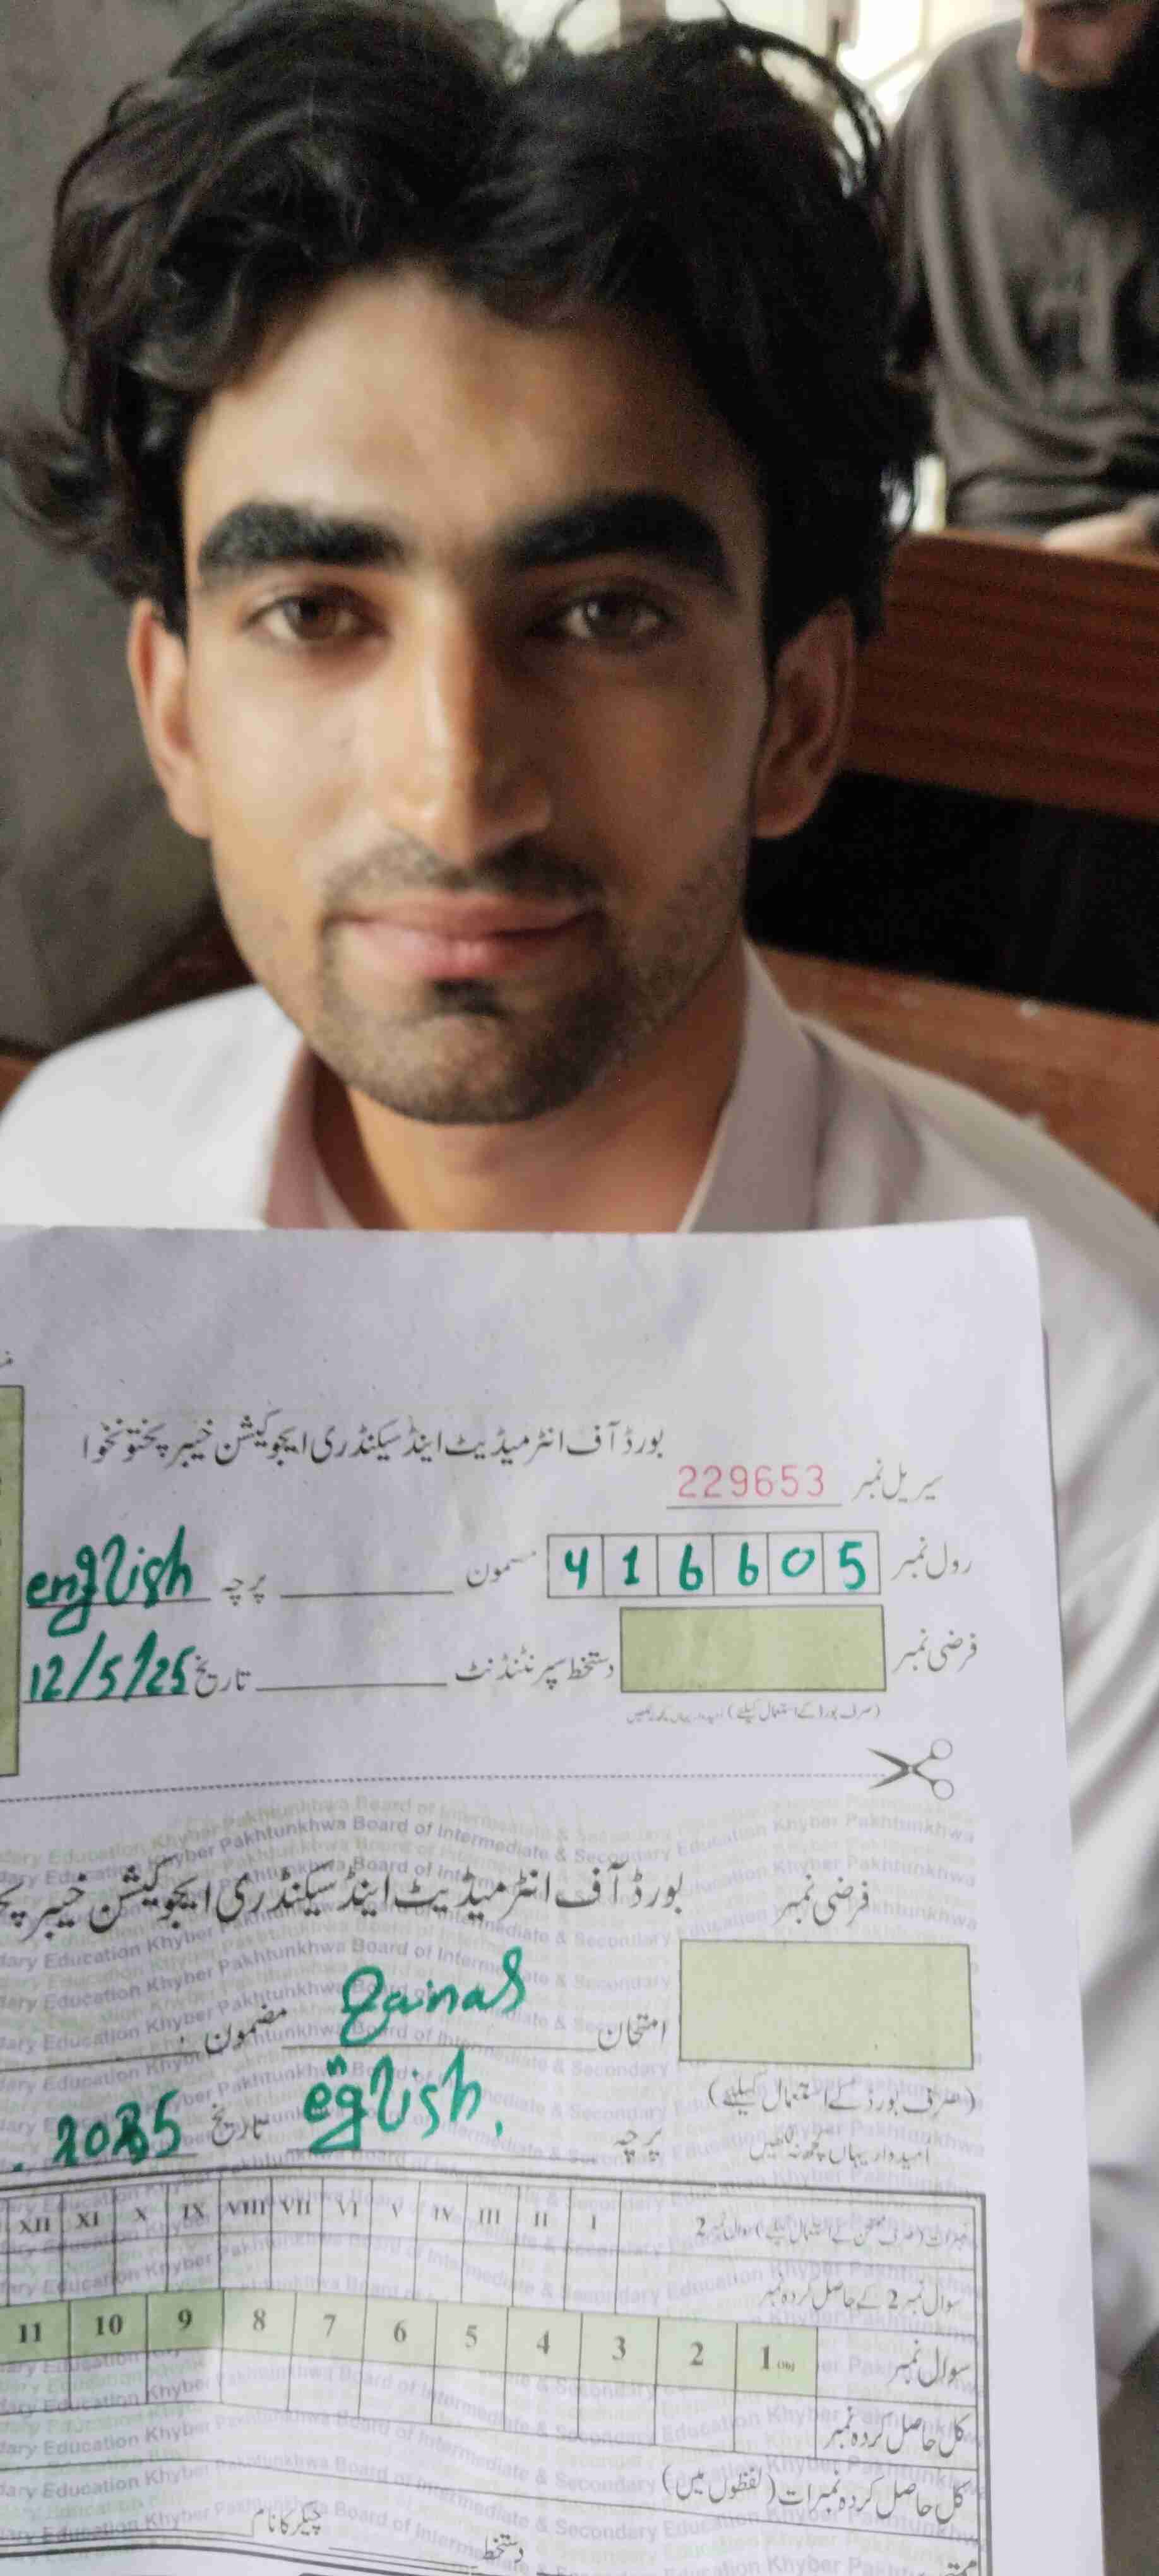 بورڈ آف انٹرمیڈیٹ اینڈ سیکنڈری ایجوکیشن خیبر پختونخوا
سیریل نمبر 229653
رول نمبر 416605 مضمون پرچہ english
فرضی نمبر دستخط سپرنٹنڈنٹ تاریخ 12/5/25
(صرف بورڈ کے استعمال کیلئے)
فرضی نمبر
بورڈ آف انٹرمیڈیٹ اینڈ سیکنڈری ایجوکیشن خیبر
امتحان Zainab مضمون
(صرف بورڈ کے استعمال کیلئے)
امیدوار یہاں کچھ نہ لکھیں
پرچہ english. تاریخ
I II III IV V VI VII VIII IX X XI XII
سوال نمبر 2 کے حاصل کردہ نمبر
سوال نمبر 1 2 3 4 5 6 7 8 9 10 11
کل حاصل کردہ نمبر
کل حاصل کردہ نمبرات (لفظوں میں)
دستخط چیکر کا نام
Khyber Pakhtunkhwa Board of Intermediate & Secondary Education Khyber Pakhtunkhwa